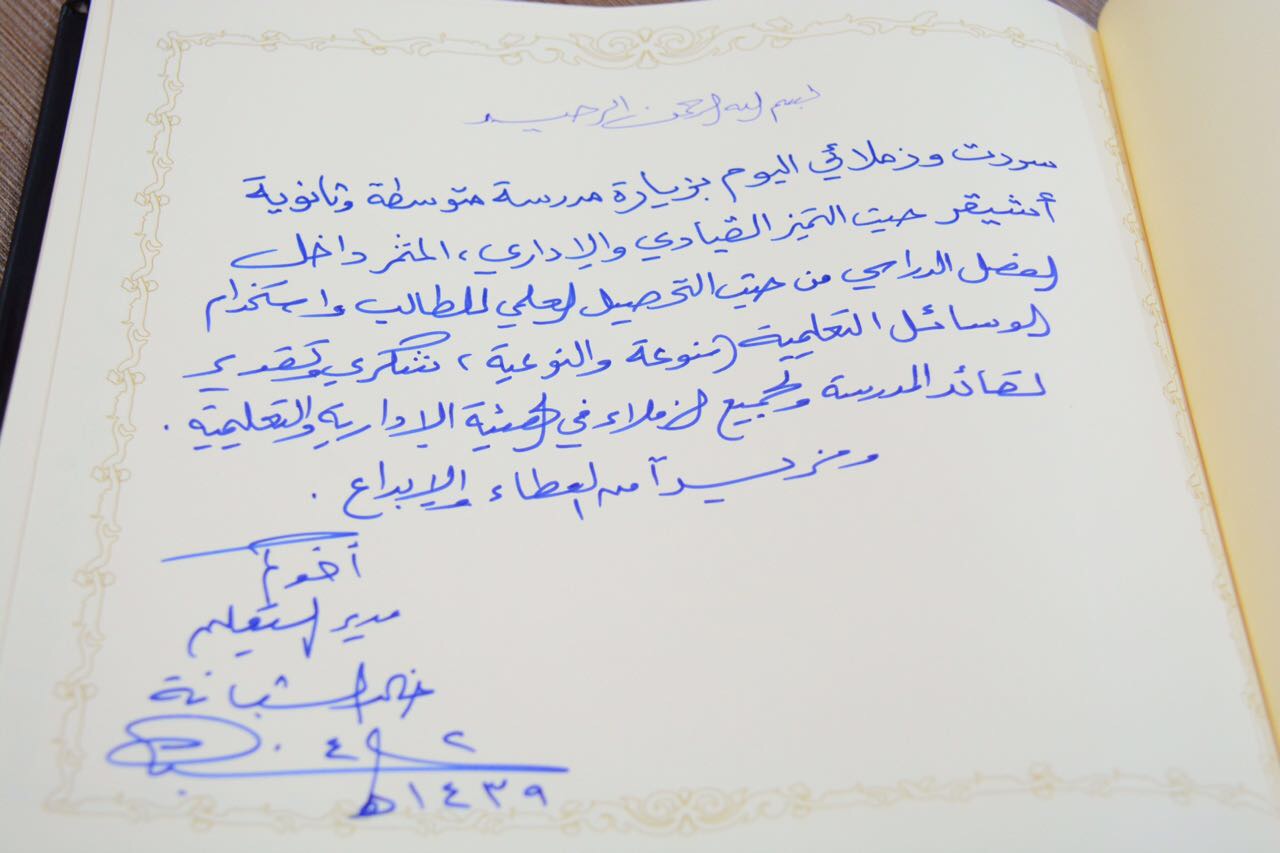 بسم الله الرحمن الرحيم
سررت وزملائي اليوم بزيارة مدرسة متوسطة وثانوية
أشيقر حيث التميز القيادي والإداري، المثمر داخل
الفصل الدراسي من حيث التحصيل العلمي للطالب واستخدام
الوسائل التعليمية المتنوعة والنوعية، شكري وتقديري
لقائد المدرسة ولجميع الزملاء في الهيئة الإدارية والتعليمية.
ومزيداً من العطاء والإبداع.
أخوكم
مدير التعليم
خالد الشبانة
٢ / ٤
١٤٣٩هـ